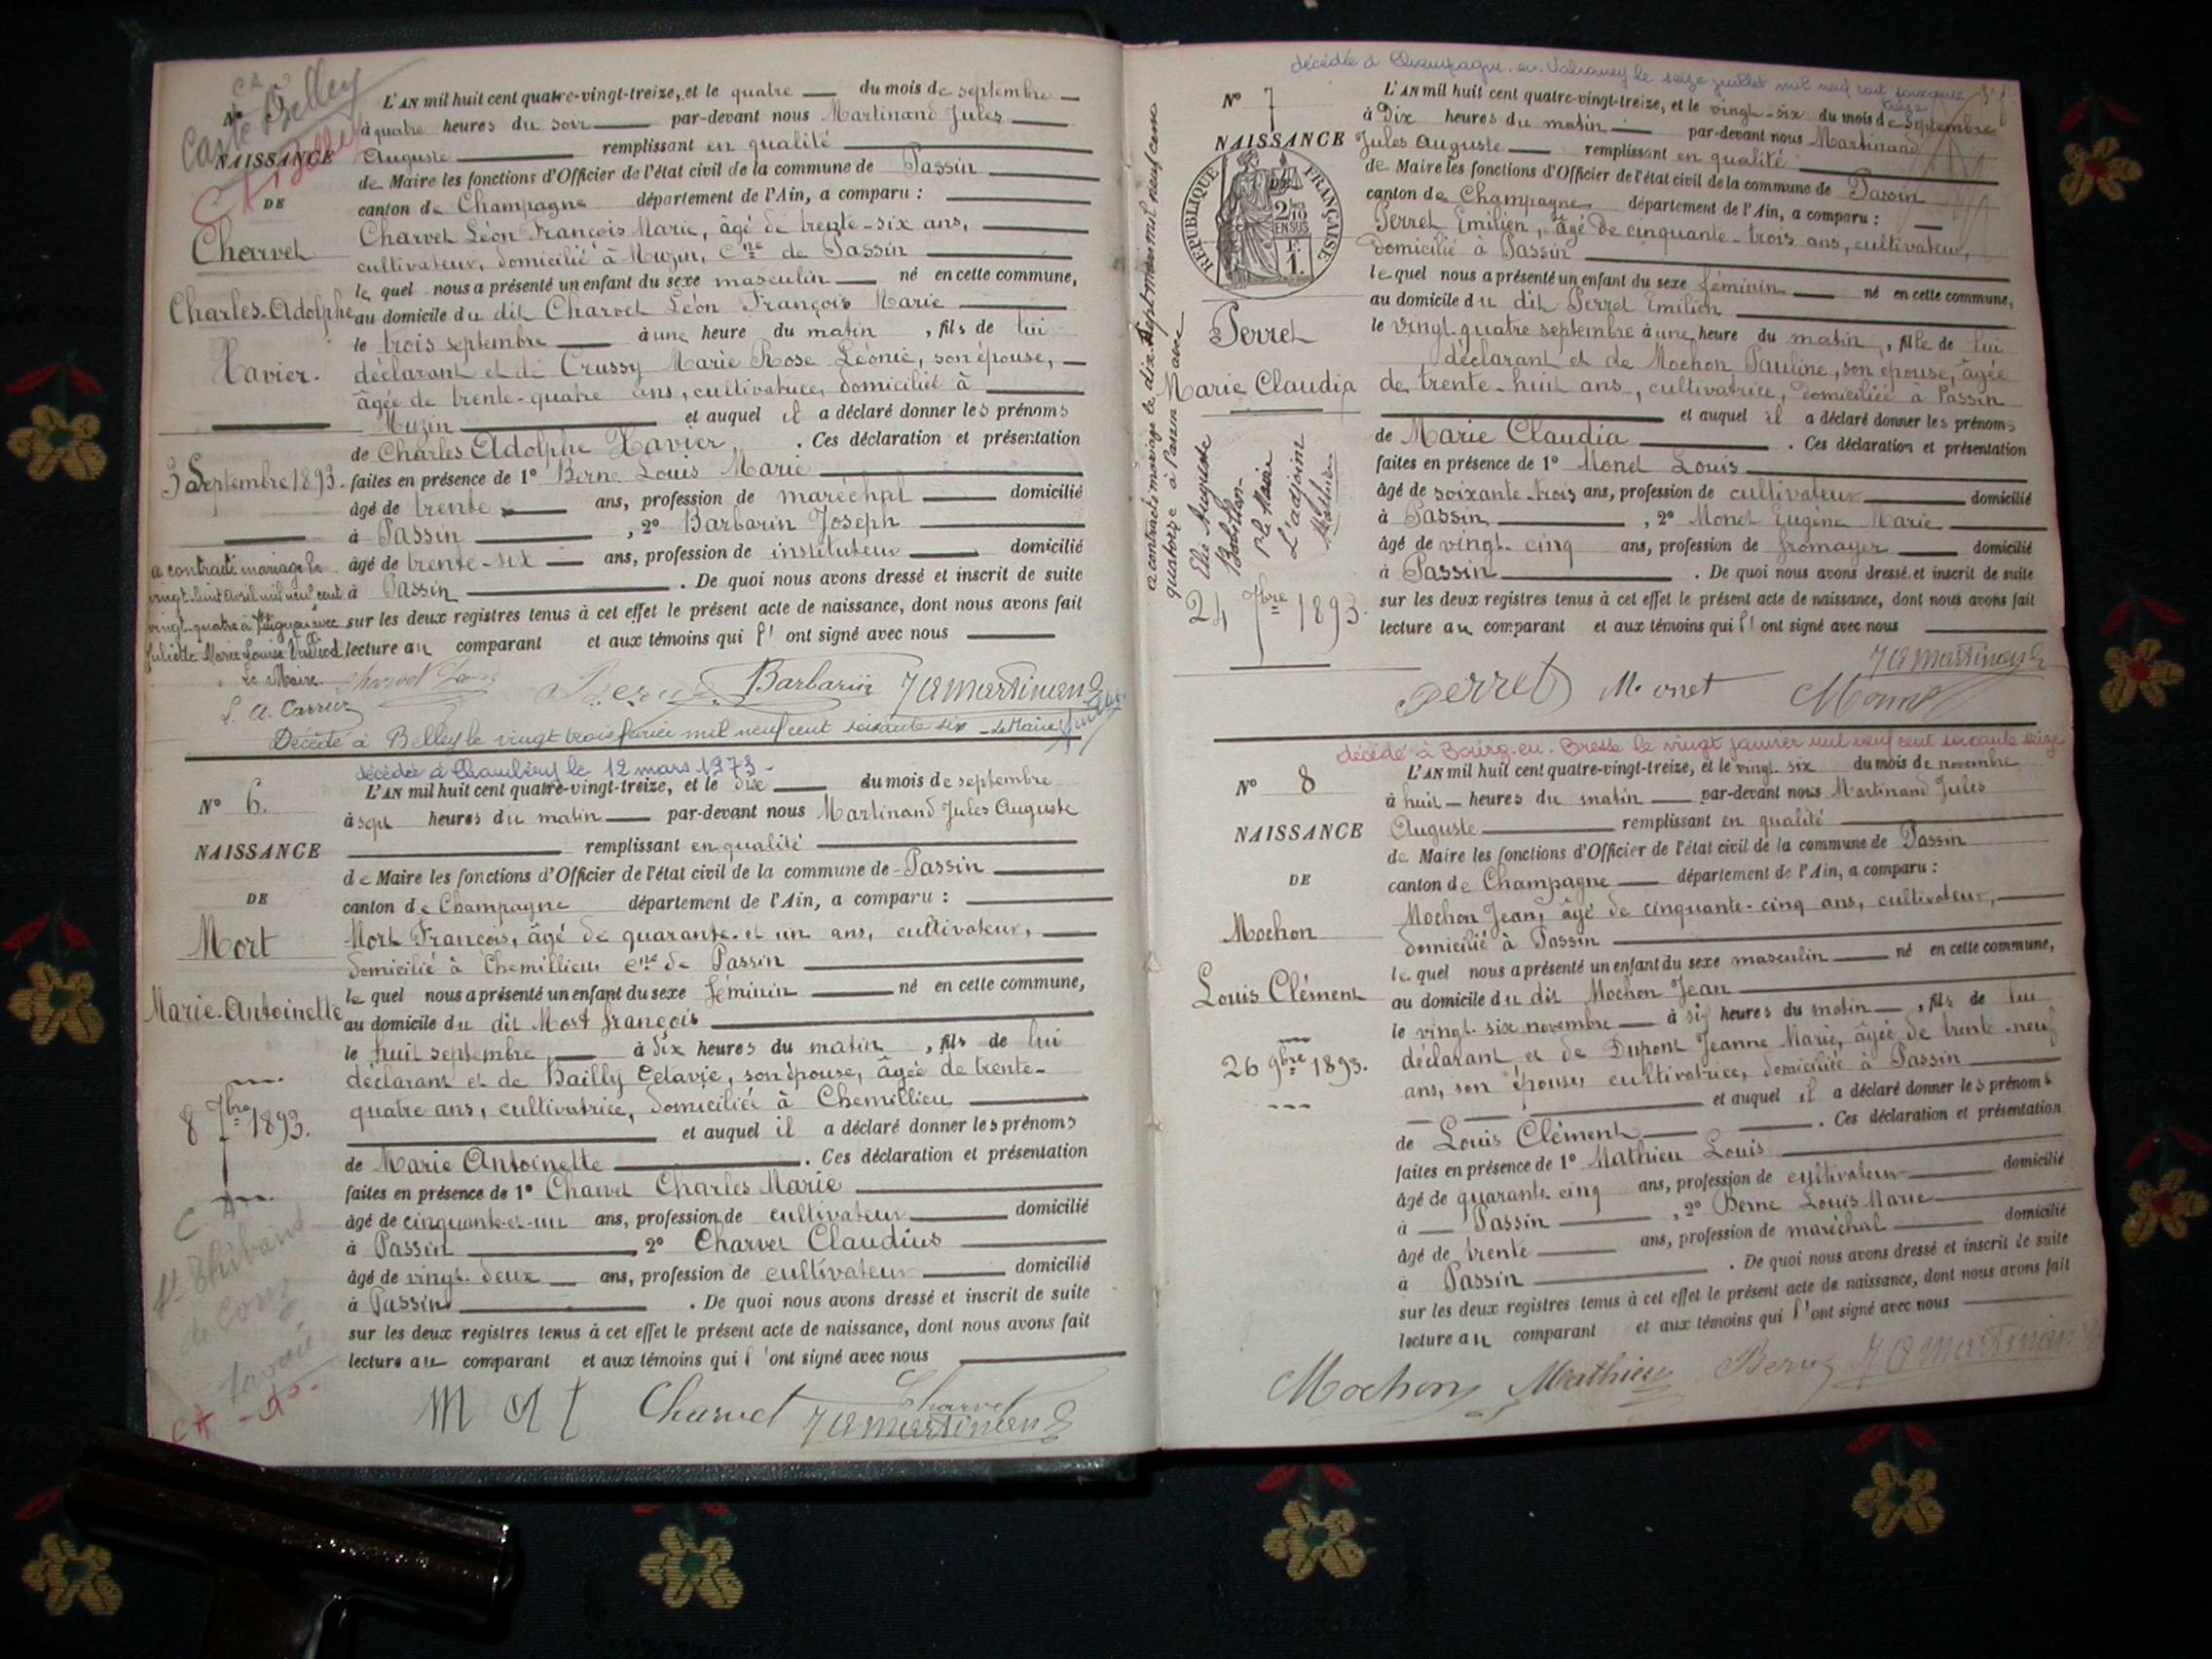 Nº
NAISSANCE
DE
Charvet
Charles-Adolphe
Xavier.
3 Septembre 1893.
a contracté mariage le
vingt-huit avril mil neuf cent
vingt-quatre à
Juliette Marie Louise
Le Maire
L'AN mil huit cent quatre-vingt-treize, et le quatre du mois de septembre
à quatre heures du soir par-devant nous Martinand Jules
Auguste remplissant en qualité
de Maire les fonctions d'Officier de l'état civil de la commune de Passin
canton de Champagne département de l'Ain, a comparu :
Charvet Léon François Marie, âgé de trente-six ans,
cultivateur, domicilié à Muzin, Cne de Passin
lequel nous a présenté un enfant du sexe masculin né en cette commune,
au domicile du dit Charvet Léon François Marie
le trois septembre à une heure du matin, fils de lui
déclarant et de Crussy Marie Rose Léonie, son épouse,
âgée de trente-quatre ans, cultivatrice, domicilié à
Muzin et auquel il a déclaré donner les prénoms
de Charles Adolphe Xavier. Ces déclaration et présentation
faites en présence de 1º Berne Louis Marie
âgé de trente ans, profession de maréchal domicilié
à Passin, 2º Barbarin Joseph
âgé de trente-six ans, profession de instituteur domicilié
à Passin. De quoi nous avons dressé et inscrit de suite
sur les deux registres tenus à cet effet le présent acte de naissance, dont nous avons fait
lecture au comparant et aux témoins qui l'ont signé avec nous
Barbarin JAMartinand
Décédé à Belley le vingt trois février mil neuf cent soixante six - Le Maire
décédée à Chambéry le 12 mars 1973 -
Nº 6.
NAISSANCE
DE
Mort
Marie-Antoinette
8 7bre 1893.
L'AN mil huit cent quatre-vingt-treize, et le dix du mois de septembre
à sept heures du matin par-devant nous Martinand Jules Auguste
remplissant en qualité
de Maire les fonctions d'Officier de l'état civil de la commune de Passin
canton de Champagne département de l'Ain, a comparu :
Mort François, âgé de quarante-et un ans, cultivateur,
domicilié à Chemillieu cne de Passin
lequel nous a présenté un enfant du sexe féminin né en cette commune,
au domicile du dit Mort françois
le huit septembre à dix heures du matin, fils de lui
déclarant et de Bailly Octavie, son épouse, âgée de trente-
quatre ans, cultivatrice, domiciliée à Chemillieu
et auquel il a déclaré donner les prénoms
de Marie Antoinette. Ces déclaration et présentation
faites en présence de 1º Charvet Charles Marie
âgé de cinquante-et-un ans, profession de cultivateur domicilié
à Passin 2º Charvet Claudius
âgé de vingt-deux ans, profession de cultivateur domicilié
à Passin. De quoi nous avons dressé et inscrit de suite
sur les deux registres tenus à cet effet le présent acte de naissance, dont nous avons fait
lecture au comparant et aux témoins qui l'ont signé avec nous
Mort Charvet Charvet
JAMartinand
décédée à Champagne-en-Valromey le seize juillet mil neuf cent soixante
treize
Nº 7
NAISSANCE
DE
RÉPUBLIQUE FRANÇAISE
Perret
Marie Claudia
24 7bre 1893.
a contracté mariage le dix-sept mai mil neuf cent
quatorze à Passin avec
P. le Maire
L'adjoint
L'AN mil huit cent quatre-vingt-treize, et le vingt-six du mois de Septembre
à Dix heures du matin par-devant nous Martinand
Jules Auguste remplissant en qualité
de Maire les fonctions d'Officier de l'état civil de la commune de Passin
canton de Champagne département de l'Ain, a comparu :
Perret Emilien, âgé de cinquante-trois ans, cultivateur,
domicilié à Passin
lequel nous a présenté un enfant du sexe féminin né en cette commune,
au domicile du dit Perret Emilien
le vingt-quatre septembre à une heure du matin, fille de lui
déclarant et de Mochon Pauline, son épouse, âgée
de trente-huit ans, cultivatrice, domiciliée à Passin
et auquel il a déclaré donner les prénoms
de Marie Claudia. Ces déclaration et présentation
faites en présence de 1º Monet Louis
âgé de soixante-trois ans, profession de cultivateur domicilié
à Passin, 2º Monet Eugène Marie
âgé de vingt-cinq ans, profession de fromager domicilié
à Passin. De quoi nous avons dressé et inscrit de suite
sur les deux registres tenus à cet effet le présent acte de naissance, dont nous avons fait
lecture au comparant et aux témoins qui l'ont signé avec nous
JAMartinand
Perret Monet Monet
décédé à Bourg-en-Bresse le vingt janvier mil neuf cent soixante seize
Nº 8
NAISSANCE
DE
Mochon
Louis Clément
26 9bre 1893.
L'AN mil huit cent quatre-vingt-treize, et le vingt-six du mois de novembre
à huit heures du matin par-devant nous Martinand Jules
Auguste remplissant en qualité
de Maire les fonctions d'Officier de l'état civil de la commune de Passin
canton de Champagne département de l'Ain, a comparu :
Mochon Jean, âgé de cinquante-cinq ans, cultivateur,
domicilié à Passin
lequel nous a présenté un enfant du sexe masculin né en cette commune,
au domicile du dit Mochon Jean
le vingt-six novembre à six heures du matin, fils de lui
déclarant et de Dupont Jeanne Marie, âgée de trente-neuf
ans, son épouse, cultivatrice, domiciliée à Passin
et auquel il a déclaré donner les prénoms
de Louis Clément. Ces déclaration et présentation
faites en présence de 1º Mathieu Louis
âgé de quarante-cinq ans, profession de cultivateur domicilié
à Passin, 2º Berne Louis Marie
âgé de trente ans, profession de maréchal domicilié
à Passin. De quoi nous avons dressé et inscrit de suite
sur les deux registres tenus à cet effet le présent acte de naissance, dont nous avons fait
lecture au comparant et aux témoins qui l'ont signé avec nous
Mochon Mathieu Berne JAMartinand